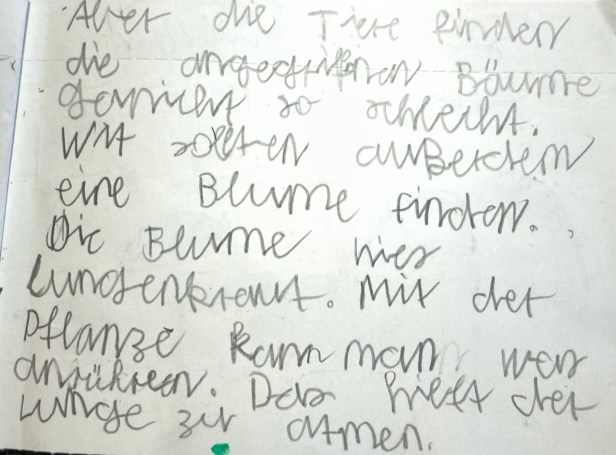 Aber die Tiere finden
die angegrifenen Bäume
garnicht so schlecht.
Wir sollten außerdem
eine Blume finden.
Die Blume hies
Lungenkraut. Mit der
Pflanze kann man was
anrühren. Das hielft der
Lunge zu atmen.